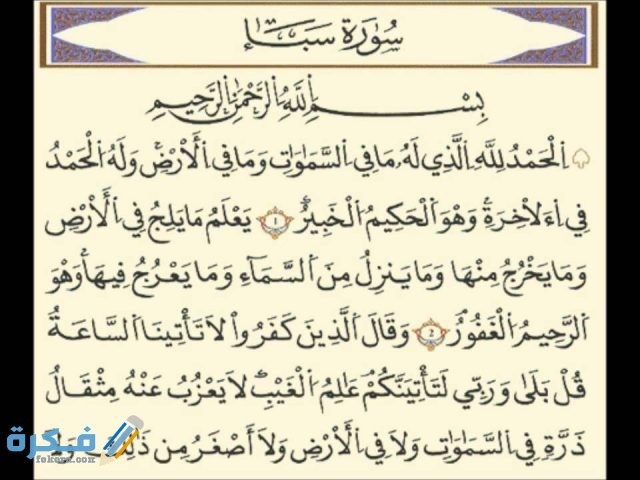 سُورَةُ سَبَإٍ
بِسْمِ اِ۬للَّهِ اِ۬لرَّحْمَٰنِ اِ۬لرَّحِيمِ
اِ۬لْحَمْدُ لِلَّهِ اِ۬لَّذِي لَهُۥ مَا فِي اِ۬لسَّمَٰوَٰتِ وَمَا فِي اِ۬لْأَرْضِۖ وَلَهُ اُ۬لْحَمْدُ
فِي اِ۬ءَلَاخِرَةِۖ وَهْوَ اَ۬لْحَكِيمُ اُ۬لْخَبِيرُۖ ١ يَعْلَمُ مَا يَلِجُ فِي اِ۬لْأَرْضِ
وَمَا يَخْرُجُ مِنْهَا وَمَا يَنزِلُ مِنَ اَ۬لسَّمَآءِ وَمَا يَعْرُجُ فِيهَاۖ وَهْوَ
اَ۬لرَّحِيمُ اُ۬لْغَفُورُۖ 2 وَقَالَ اَ۬لَّذِينَ كَفَرُواْ لَا تَأْتِينَا اَ۬لسَّاعَةُۖ
قُلْ بَلَىٰ وَرَبِّي لَتَأْتِيَنَّكُمْ عَٰلِمُ اُ۬لْغَيْبِۖ لَا يَعْزُبُ عَنْهُ مِثْقَالُ
ذَرَّةٖ فِي اِ۬لسَّمَٰوَٰتِ وَلَا فِي اِ۬لْأَرْضِ وَلَا أَصْغَرُ مِن ذَٰلِكَ وَلَا
فكرة
fokera.com